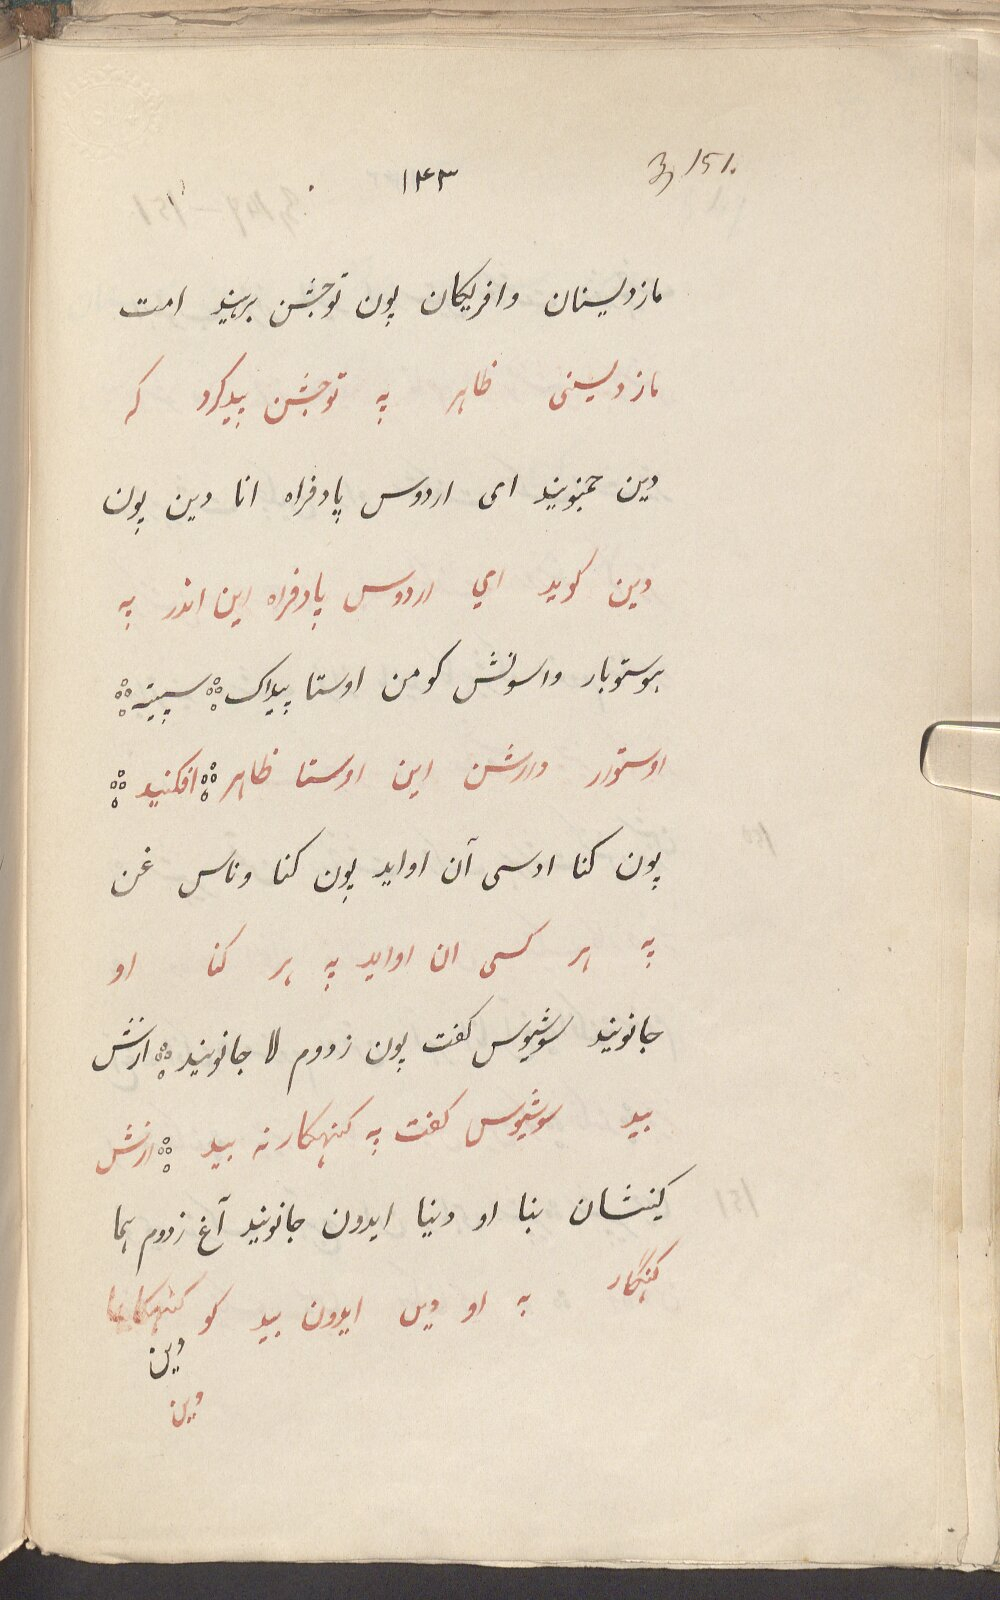 ۱۴۳
151.
مازدیسنان وافریکان پون توجشن برهیند امت
مازدیسنی ظاهر په توجشن بیدکرد که
دین جمنونید ای اردوس پادفراه انا دین پون
دین کوید ای اردوس پادفراه این اندر په
هوستوبار واسونش کومن اوستا پیداک سپیته
اوستورر دررشن این اوستا ظاهر افکنید
پون کنا ادسی آن اواید پون کنا وناس غن
په هر کسی ان اواید په هر کنا او
جانونید سوشیوس کفت پون زدوم لا جانونید ازش
بید سوشیوس کفت په کنهکار نه بید ازش
کینشان بنا او دینا ایدون جانونید آغ زدوم هما
کنهگار به او دین ایدون بید کو کنهکار
دین
دین